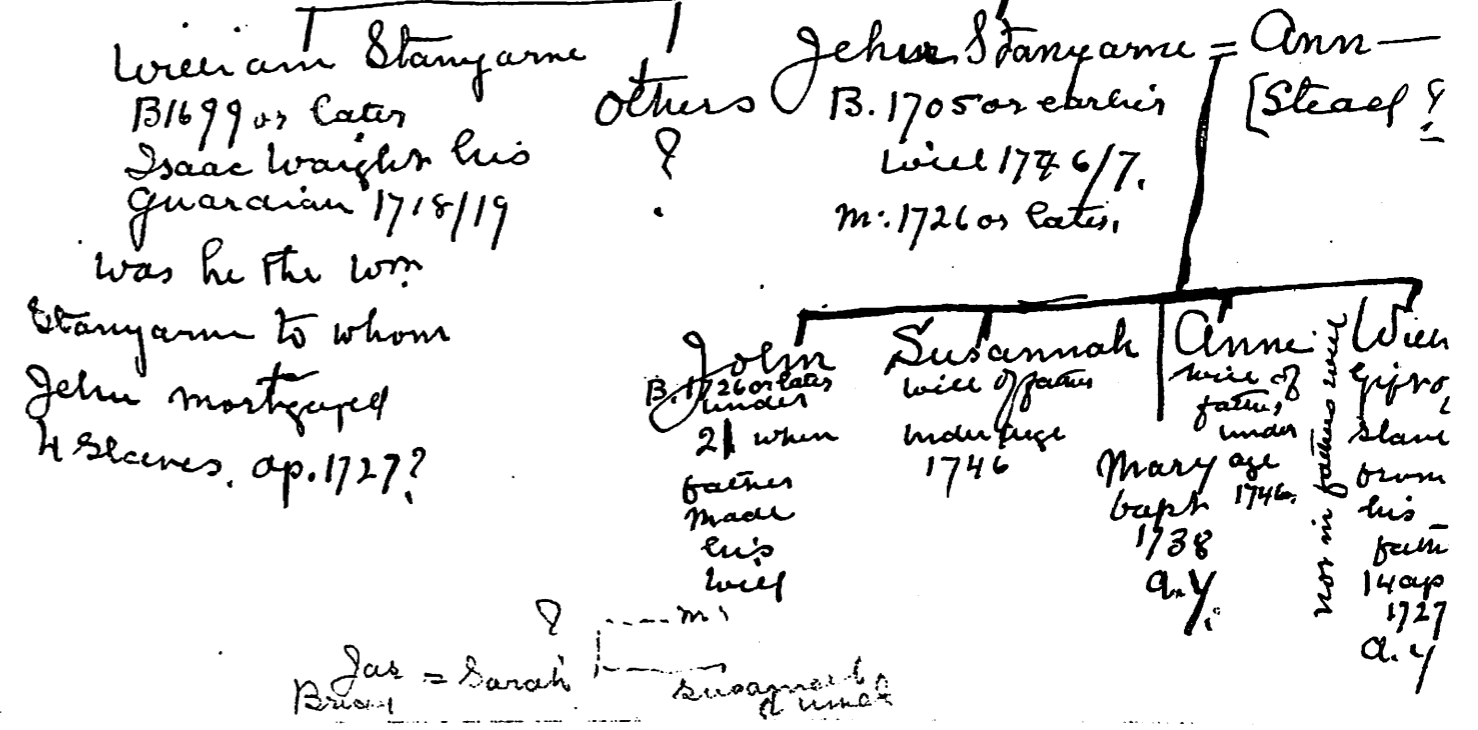 William Stanyarne
B1699 or later
Isaac Waight his
Guardian 1718/19
was he the Wm
Stanyarne to whom
John mortgaged
4 Slaves. ap. 1727?
others
?
John Stanyarne = Ann —
B. 1705 or earlier
[Stead ?
will 1746/7.
m. 1726 or later.
John
B. 1726 or later
under
21 when
father
made
his
will
Susannah
will of father
under age
1746
Mary
bapt
1738
a.y.
Anne
will of
father
under
age
1746.
not in fathers will
Will
Gift of
slave
from
his
fath
14 ap
1727
a.y
?
m.
Jas = Sarah
Susannah
d unm